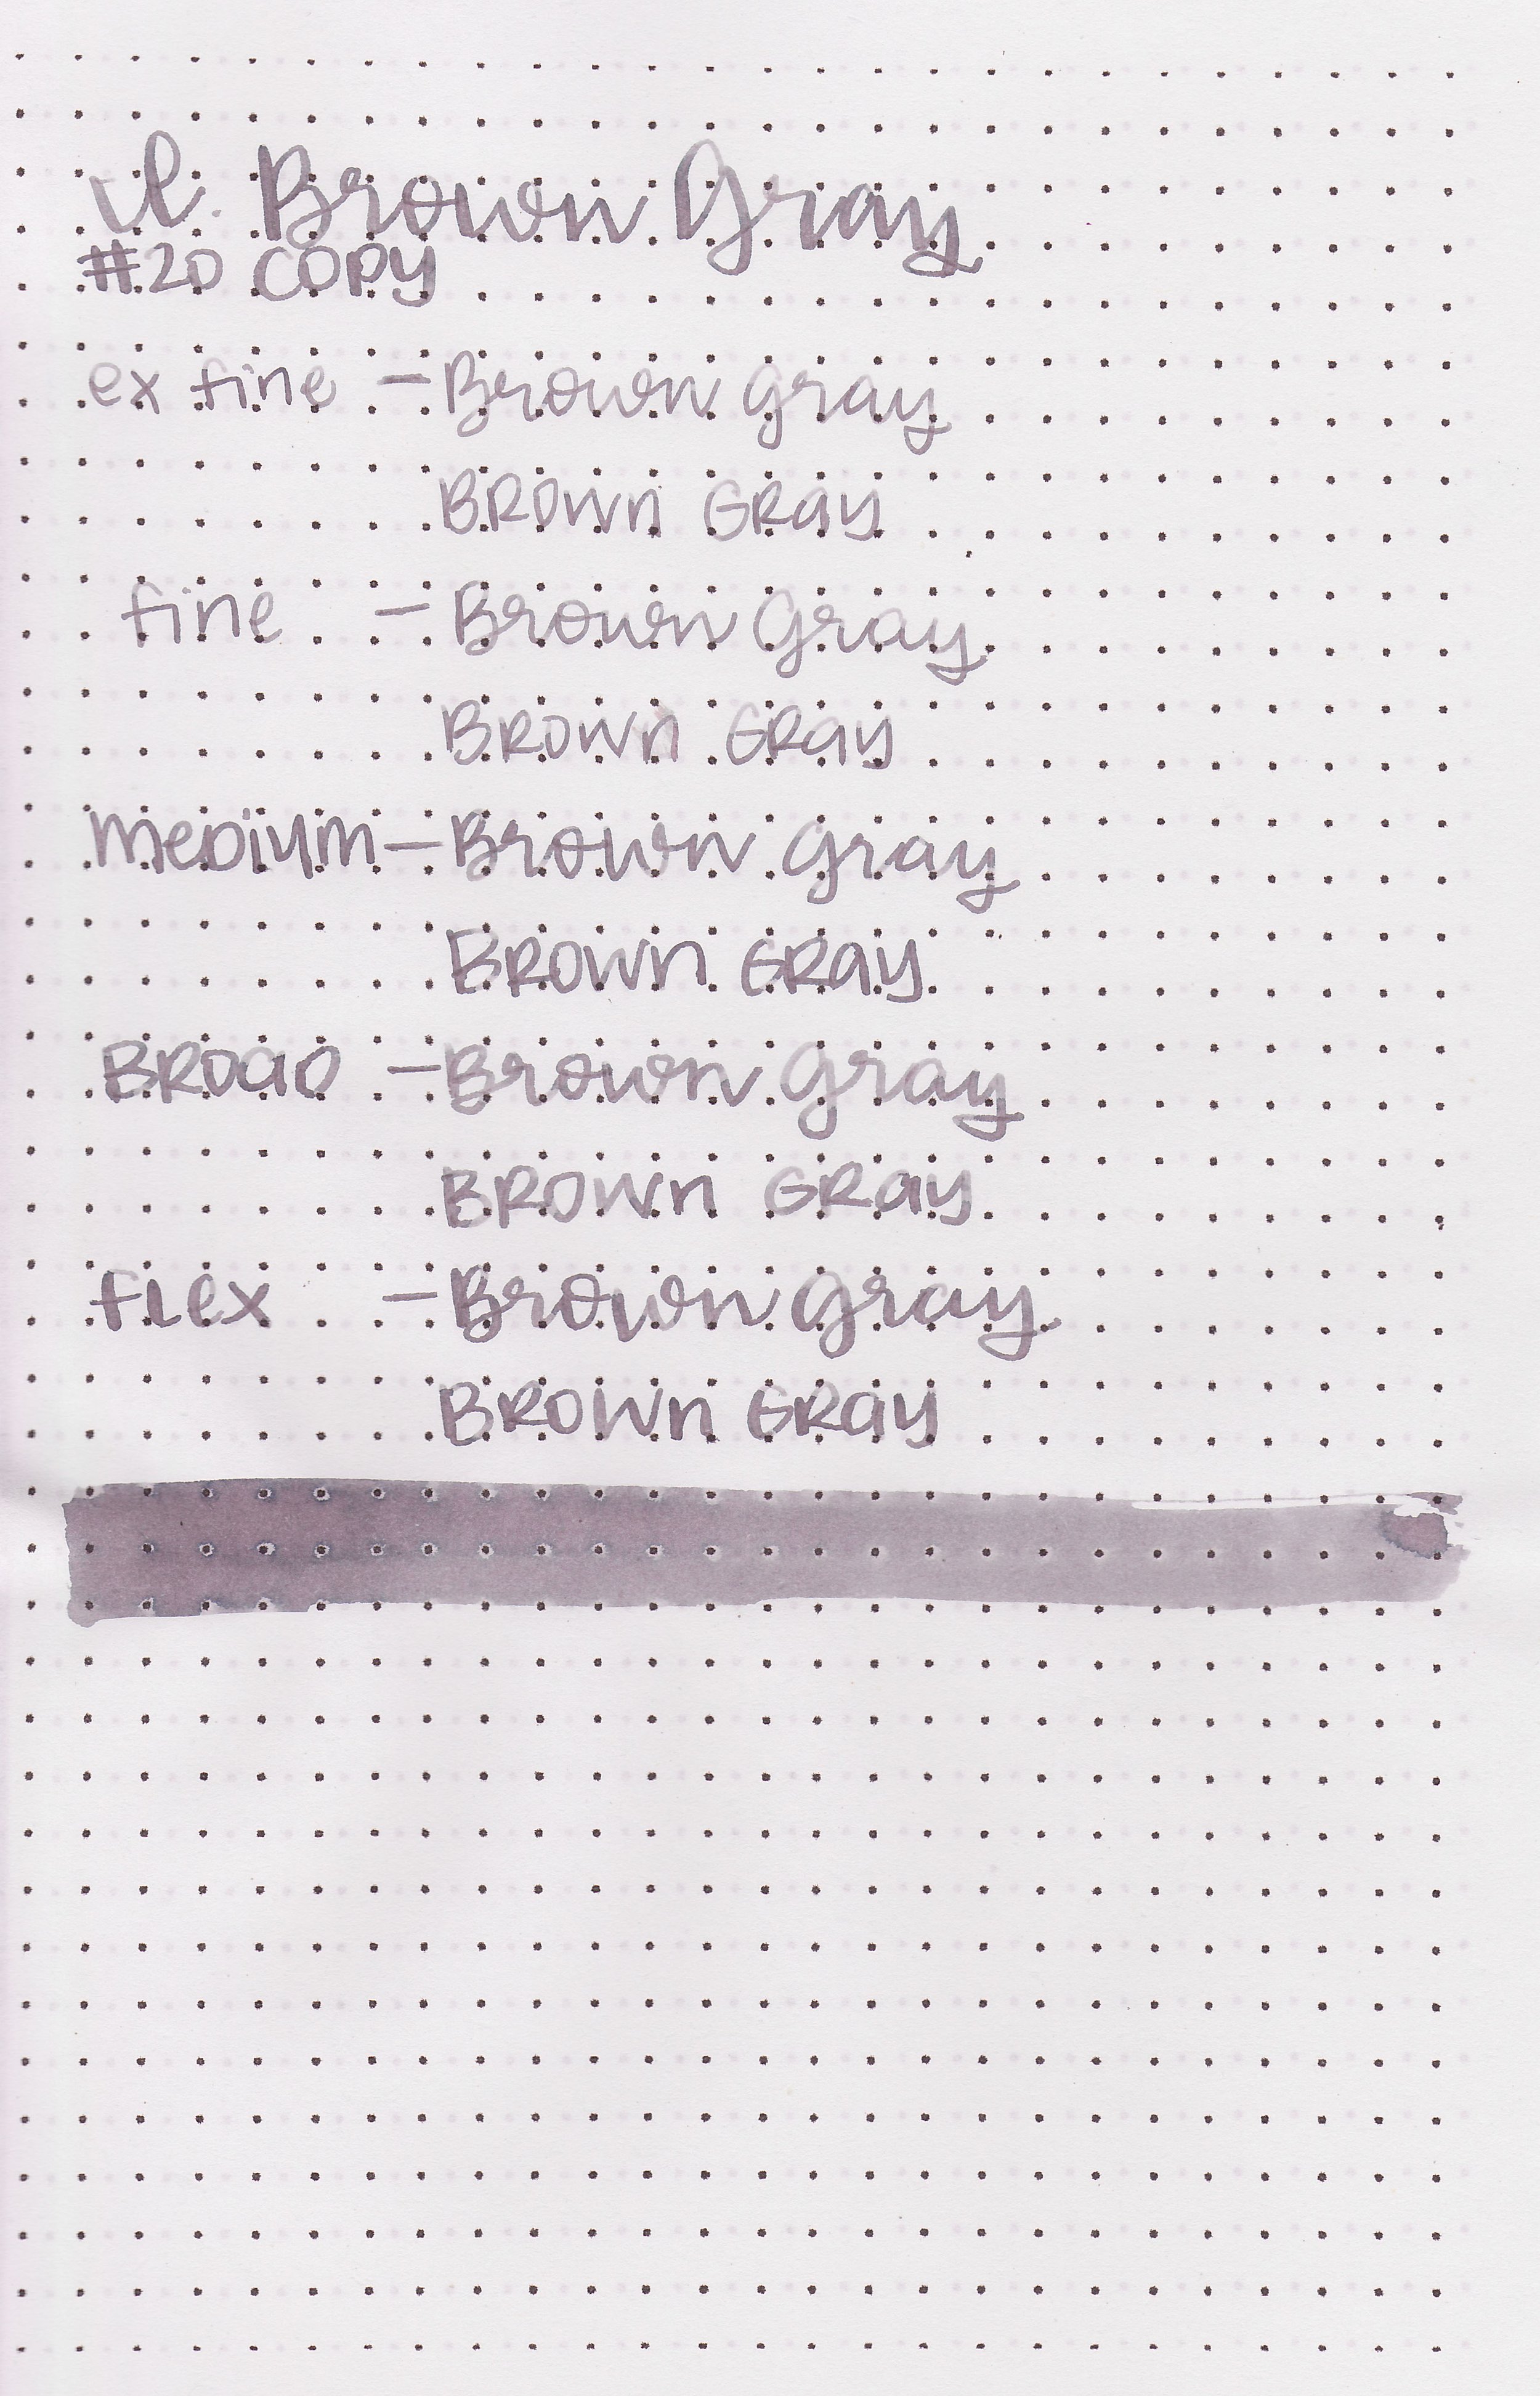 Il. Brown Gray
#20 COPY
ex fine - Brown Gray
Brown Gray
fine - Brown Gray
Brown Gray
Medium - Brown Gray
Brown Gray
Broad - Brown Gray
Brown Gray
flex - Brown Gray
Brown Gray